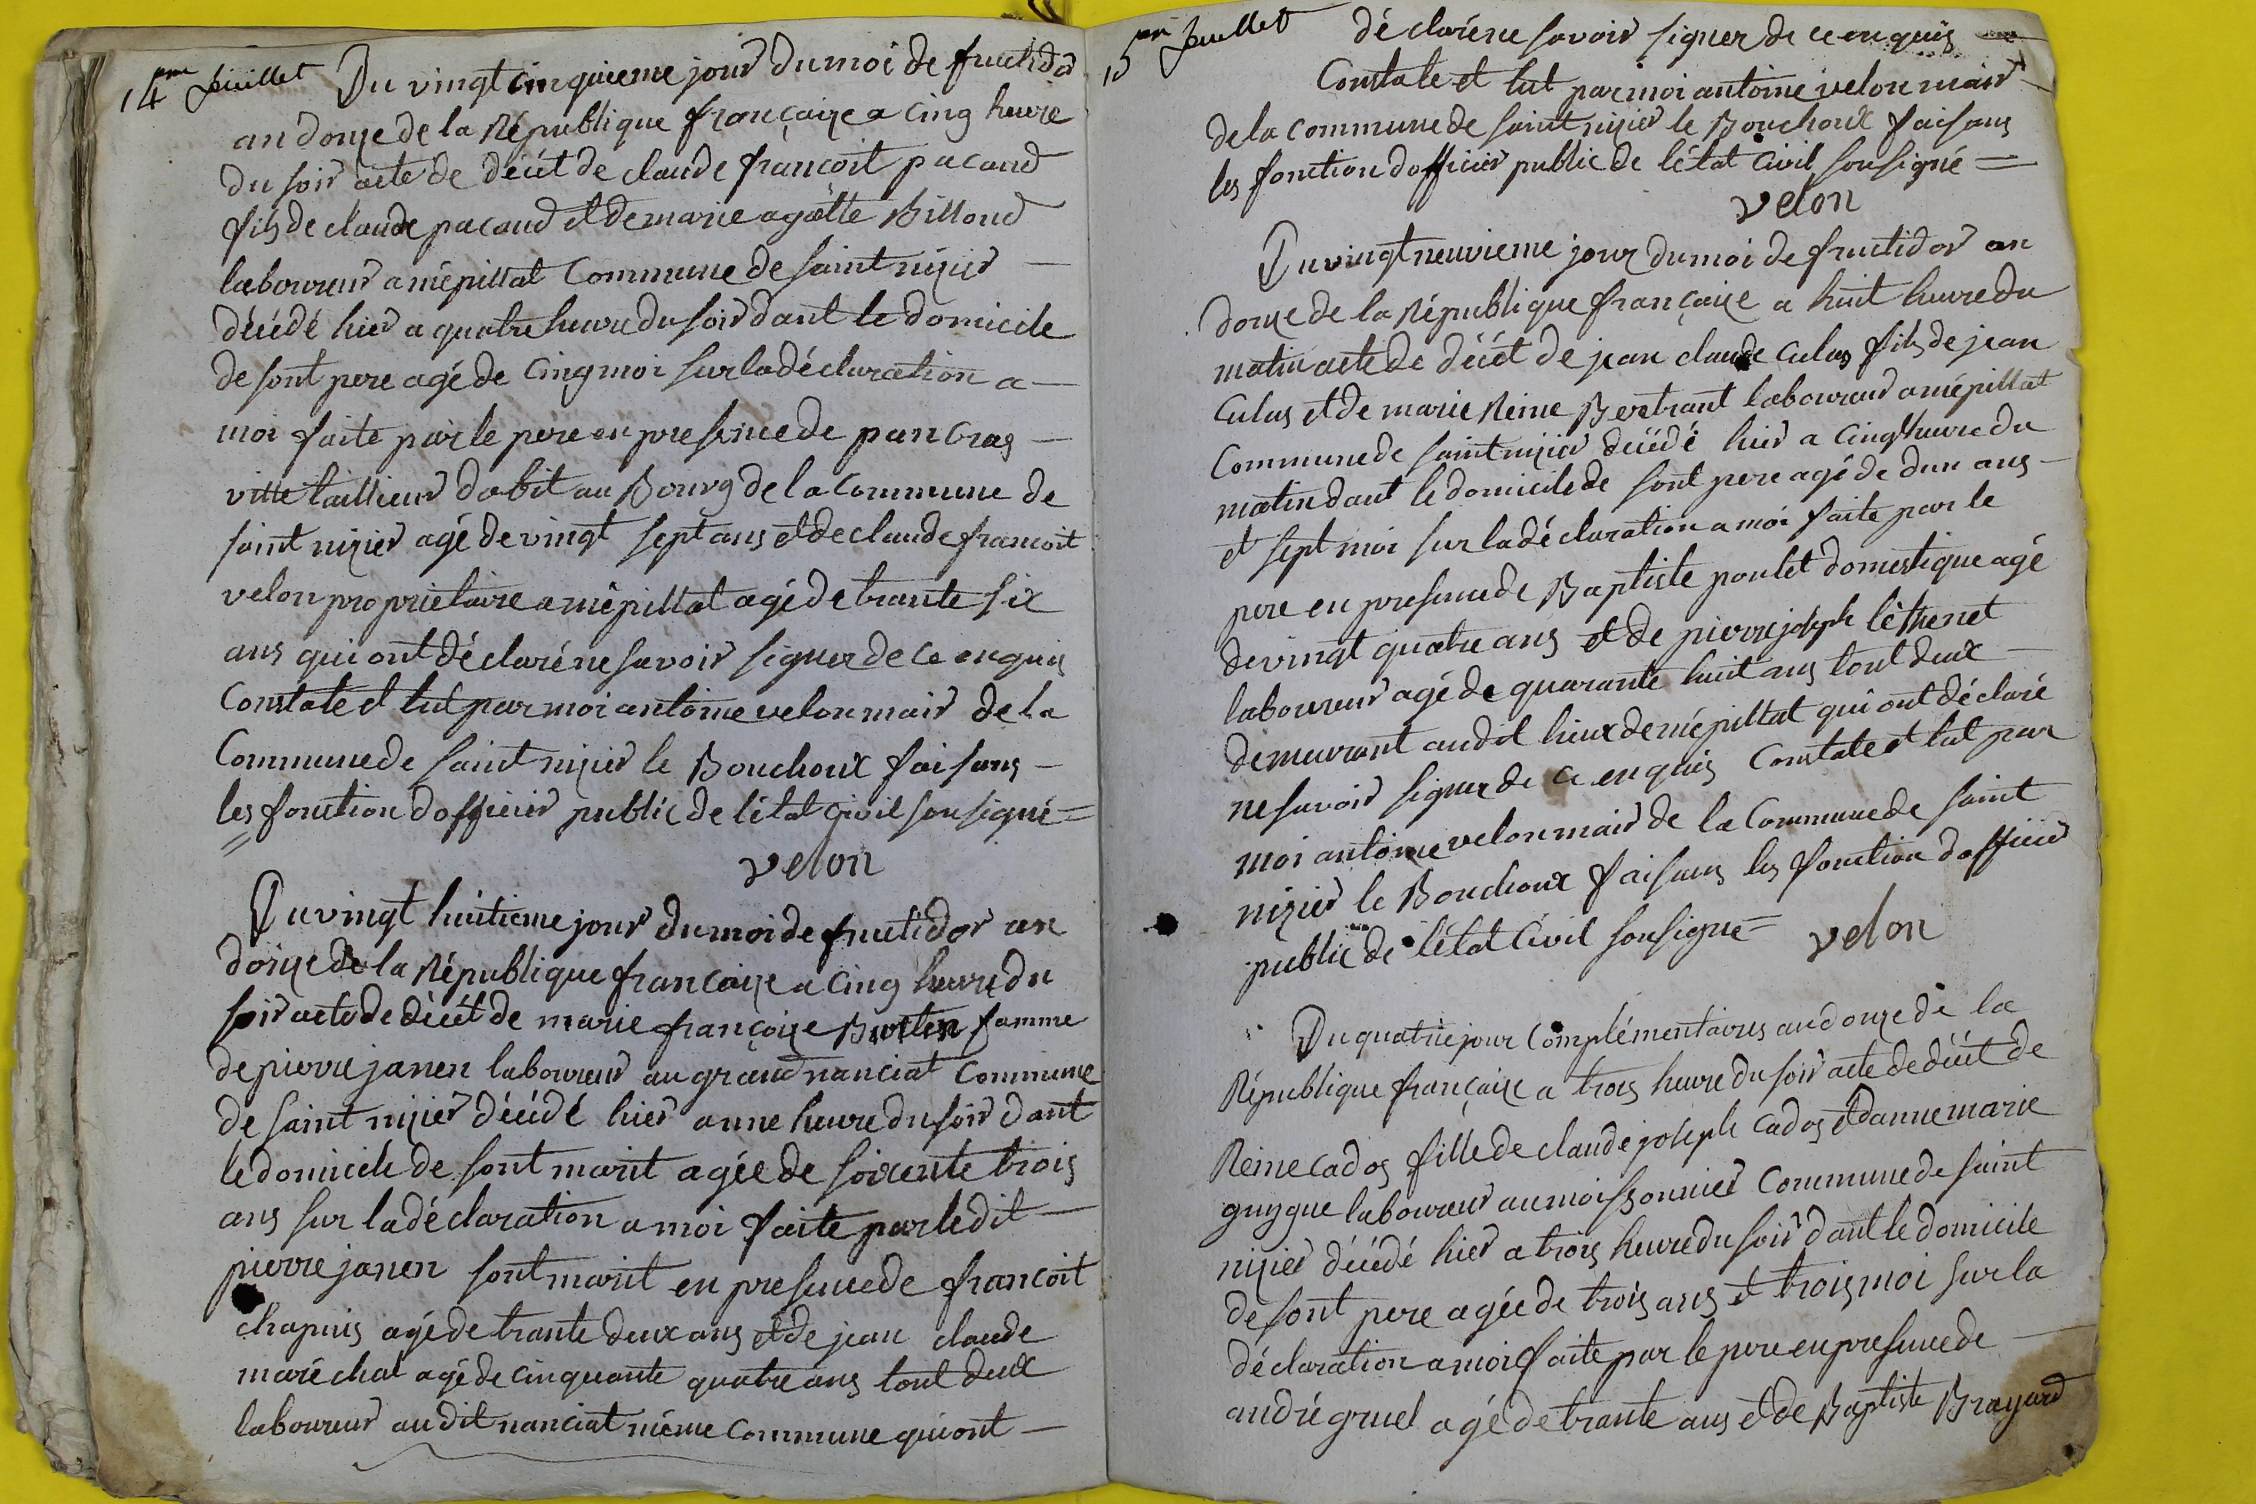 14eme feuillet
Du vingt cinquieme jour du moi de fructidor
an donze de la République françaize a cinq heure
du soir acte de décét de claude françoit pacaud
fils de claude pacaud et de marie agatte Billoud
laboureur a mépillat Commune de saint nizier —
décédé hier a quatre heure du soir dant le domicile
de sont pere agé de cinq moi sur la déclaration a —
moi faite par le pere en presence de pancras —
vitte taillieur dabit au Bourg de la commune de
saint nizier agé de vingt sept ans et de claude francoit
velon proprietaire a mépillat agé de trante six
ans qui ont déclaré ne savoir signer de ce enquis
Constate et lut par moi antoine velon mair de la
Commune de saint nizier le Bouchoux faisans —
les fonction dofficier public de létat civil sousigné =
velon
Du vingt huitieme jour du moi de fructidor an
donze de la République francaize a cinq heure du
soir acte de décét de marie françoize famme
de pierre janen laboureur au grand nanciat commune
de saint nizier décédé hier a une heure du soir dant
le domicile de sont marit agée de soixente trois
ans sur la déclaration a moi faite par le dit —
pierre janen sont marit en presence de francoit
chapuis agé de trante deux ans et de jean claude
maréchal agé de cinquante quatre ans tout deux
laboureur au dit nanciat méme commune qui ont —
15eme feuillet
déclaré ne savoir signer de ce enquis —
Constate et lut par moi antoine velon mair
de la commune de saint nizier le Bouchoux faisans
les fonction dofficier public de létat civil sousigné =
velon
Du vingt neuvieme jour du moi de fructidor an
donze de la République françaize a huit heure du
matin acte de décét de jean claude culas fils de jean
Culas et de marie Reine Bertrant laboureur a mépillat
Commune de saint nizier décédé hier a cinq heure du
matin dant le domicile de sont pere agé de dun ans —
et sept moi sur la déclaration a moi faite par le
pere en presence de Baptiste poulet domestique agé
de vingt quatre ans et de pierre joseph léthenet
laboureur agé de quarante huit ans tout deux —
demeurant audit lieux de mépillat qui ont déclaré
ne savoir signer de ce enquis Constate et lut par
moi antoine velon mair de la Commune de saint
nizier le Bouchoux faisans les fonction dofficier
public de létat civil sousigné = velon
Du quatrie jour Complémentaires an donze de la
République françaize a trois heure du soir acte de décét de
Reine cados fille de claude joseph cados et danne marie
guygue laboureur au moissonnier Commune de saint
nizier décédé hier a trois heure du soir dant le domicile
de sont pere agée de trois ans et trois moi sur la
déclaration a moi faite par le pere en presence de —
andré gruel agé de trante ans et de Baptiste Brayard